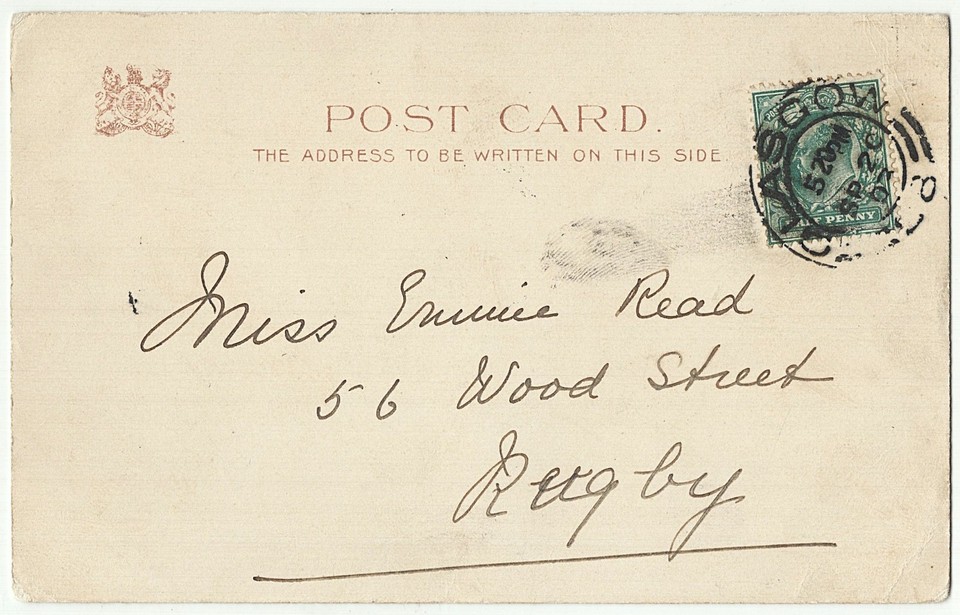 POST CARD.
THE ADDRESS TO BE WRITTEN ON THIS SIDE.
GLASGOW
5 20 PM
SP 20
HALF PENNY
Miss Emmie Read
56 Wood Street
Rugby